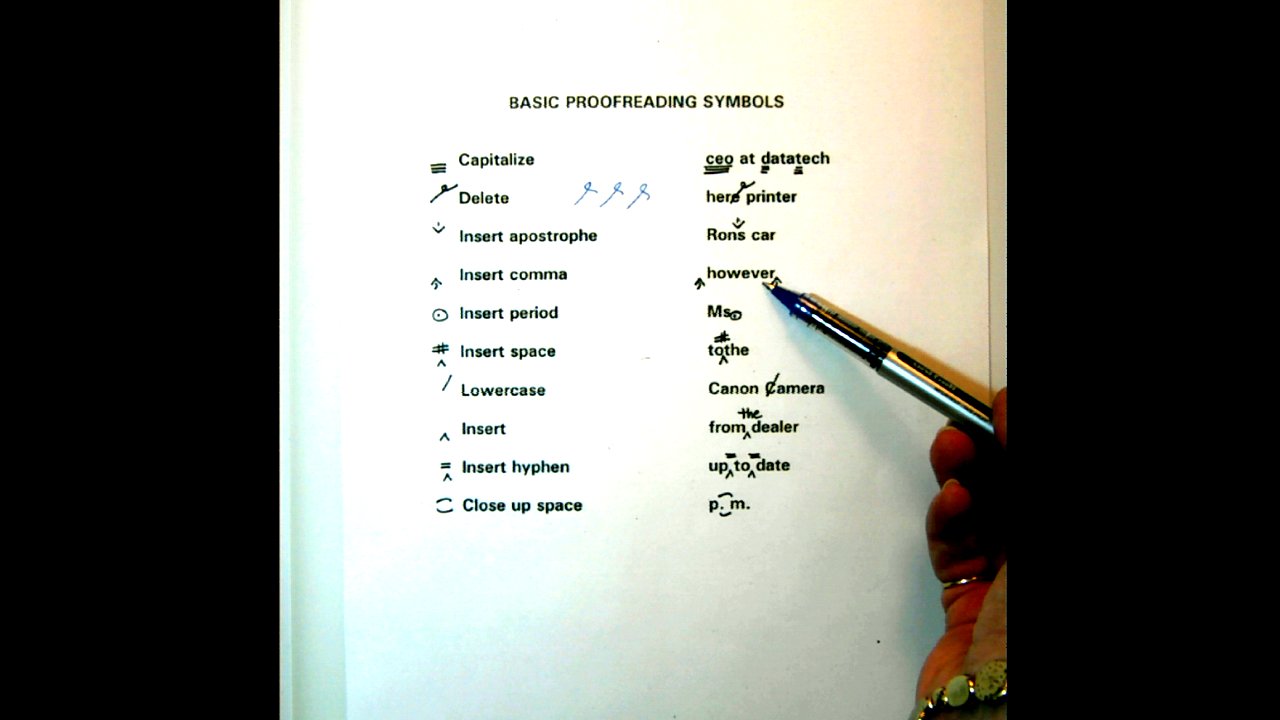 BASIC PROOFREADING SYMBOLS
Capitalize ceo at datatech
Delete here printer
Insert apostrophe Rons car
Insert comma however
Insert period Ms
# Insert space # tothe
/ Lowercase Canon Camera
the
^ Insert from^dealer
= Insert hyphen up to date
Close up space p. m.